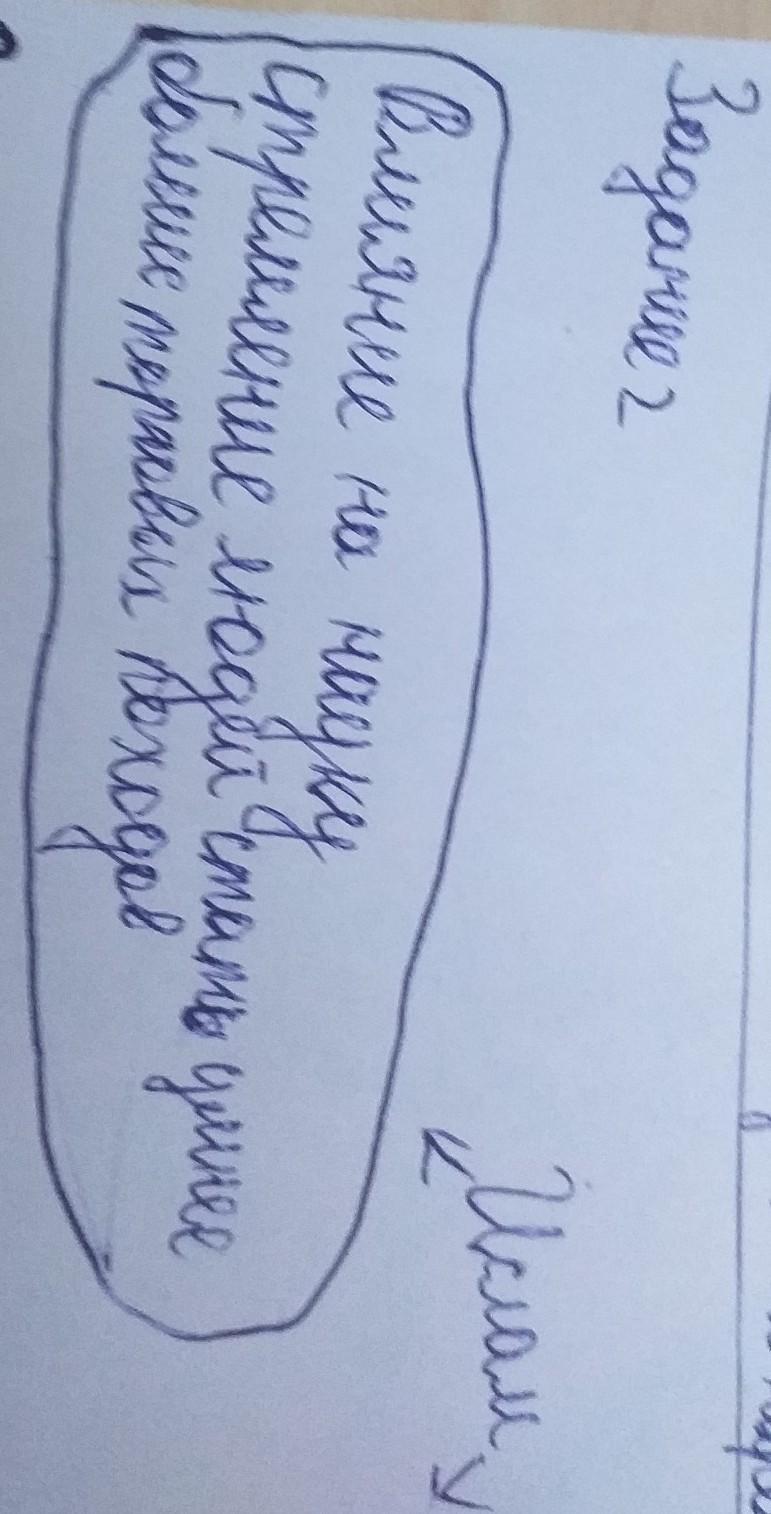 Задание 2
Ислам
Влияние на науку
стремление людей стать умнее
больше торговых походов